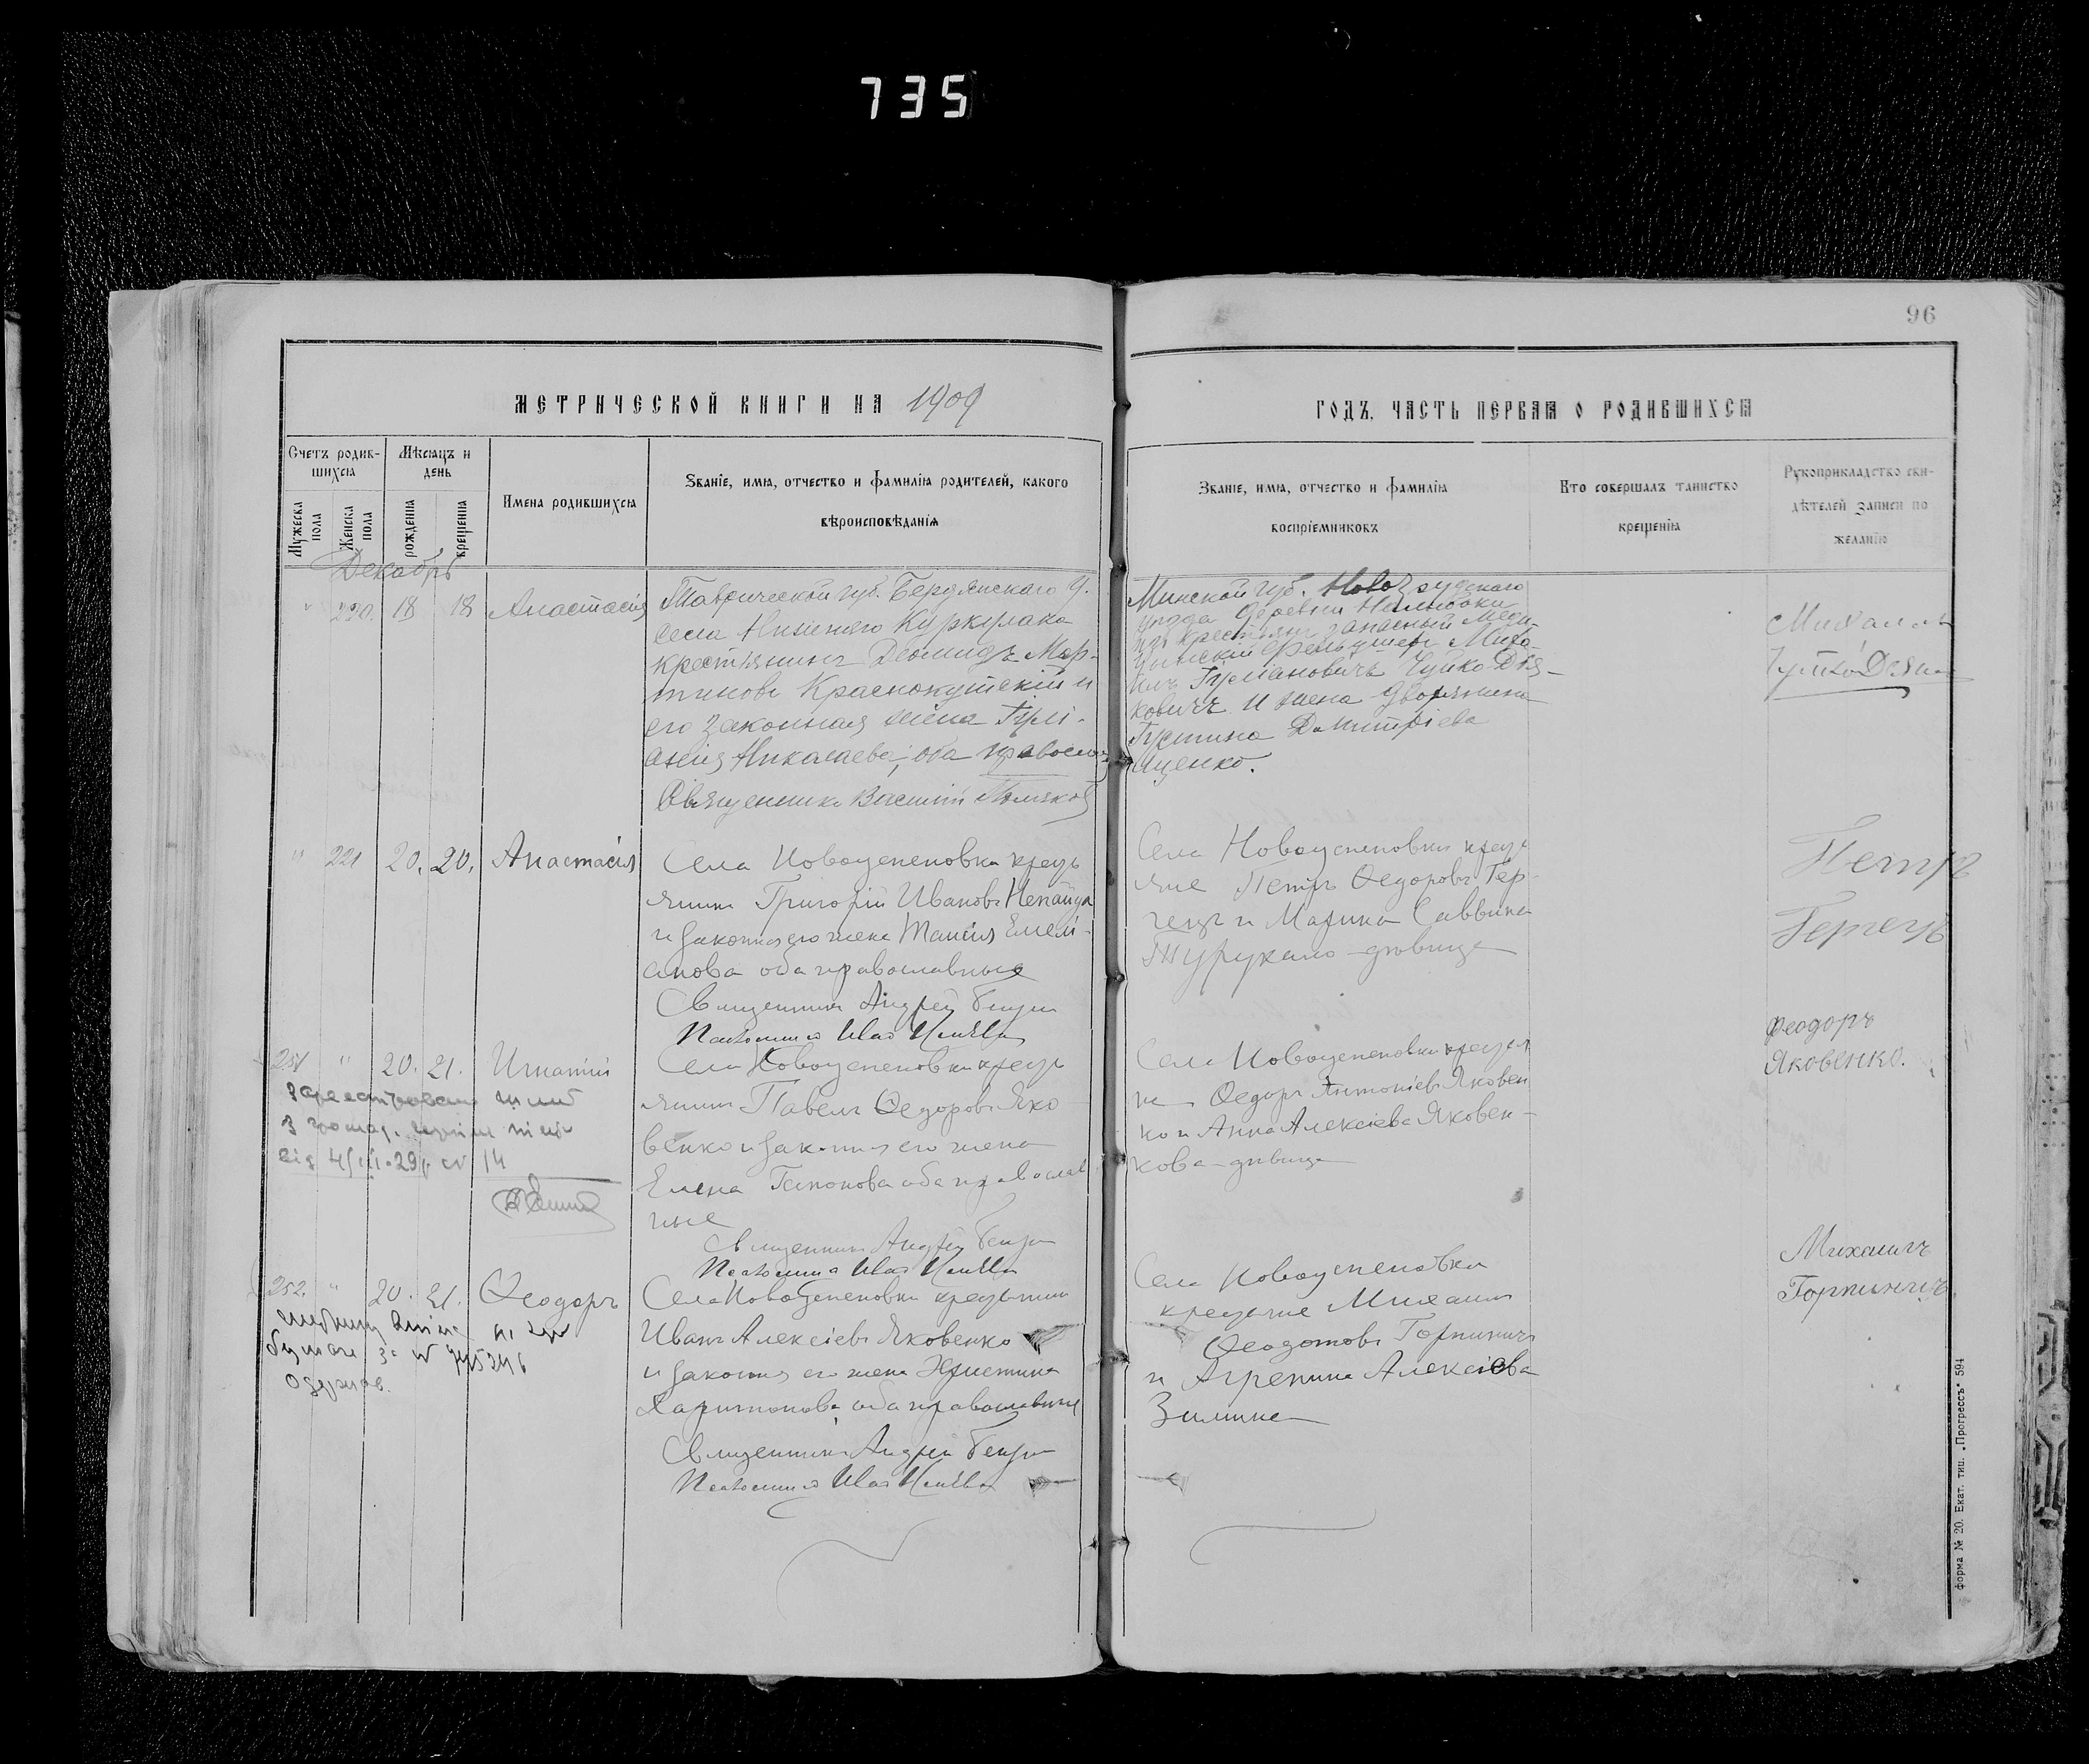 735
96
МЕТРИЧЕСКОЙ КНИГИ НА 1909
ГОДЪ, ЧАСТЬ ПЕРВАЯ О РОДИВШИХСЯ
Счетъ родив-
шихся
Мѣсяцъ и
день
Мужеска
пола
Женска
пола
рожденія
крещенія
Имена родившихся
Званіе, имя, отчество и фамилія родителей, какого
вѣроисповѣданія
Званіе, имя, отчество и фамилія
воспріемниковъ
Кто совершалъ таинство
крещенія
Рукоприкладство сви-
дѣтелей записи по
желанію
Декабрь
" 220. 18 18 Анастасія
Таврической губ. Бердянскаго у.
села Нижняго Куркулака
крестьянинъ Деомидъ Мар-
тиновъ Краснокутскій и
его законная жена
Николаева, оба православ
Священникъ Василій Поляковъ
Минской губ. Новогрудскаго
уѣзда деревни Налибоки
изъ крестьянъ запасный меди-
цинскій фельдшеръ Миха-
илъ
ковичъ и жена дворянина
Іустина Димитріева
Яценко.
Михаилъ
" 221 20. 20. Анастасія
Села Новоуспеновки кресть
янинъ Григорій Ивановъ Ненайда
и законная его жена Таисія Емелі-
анова оба православные
Священникъ Андрей
Псаломщикъ
Села Новоуспеновки кресть
яне Петръ Ѳедоровъ Гер-
гецъ и Марина Саввина
дѣвица
Петръ
Гергецъ
251 " 20. 21. Игнатій
Села Новоуспеновки кресть
янинъ Павелъ Ѳедоровъ Яко
венко и законная его жена
Елена Гапонова оба православ
ные
Священникъ Андрей
Псаломщикъ
від 4/III-29 р. № 14
Села Новоуспеновки крестья
не Ѳедоръ Антоніевъ Яковен
ко и Анна Алексіева Яковен-
кова дѣвица
Феодоръ
Яковенко.
252. " 20. 21. Ѳеодоръ
Села Новоуспеновки крестьянинъ
Иванъ Алексіевъ Яковенко
и законная его жена Христина
Харитонова оба православные
Священникъ Андрей
Псаломщикъ
Села Новоуспеновки
крестьяне Михаилъ
Ѳеодотовъ Горпиничъ
и Агрепина Алексіева
Зимина
Михаилъ
Горпиничъ
Форма № 20. Екат. тип. „Прогрессъ" 594